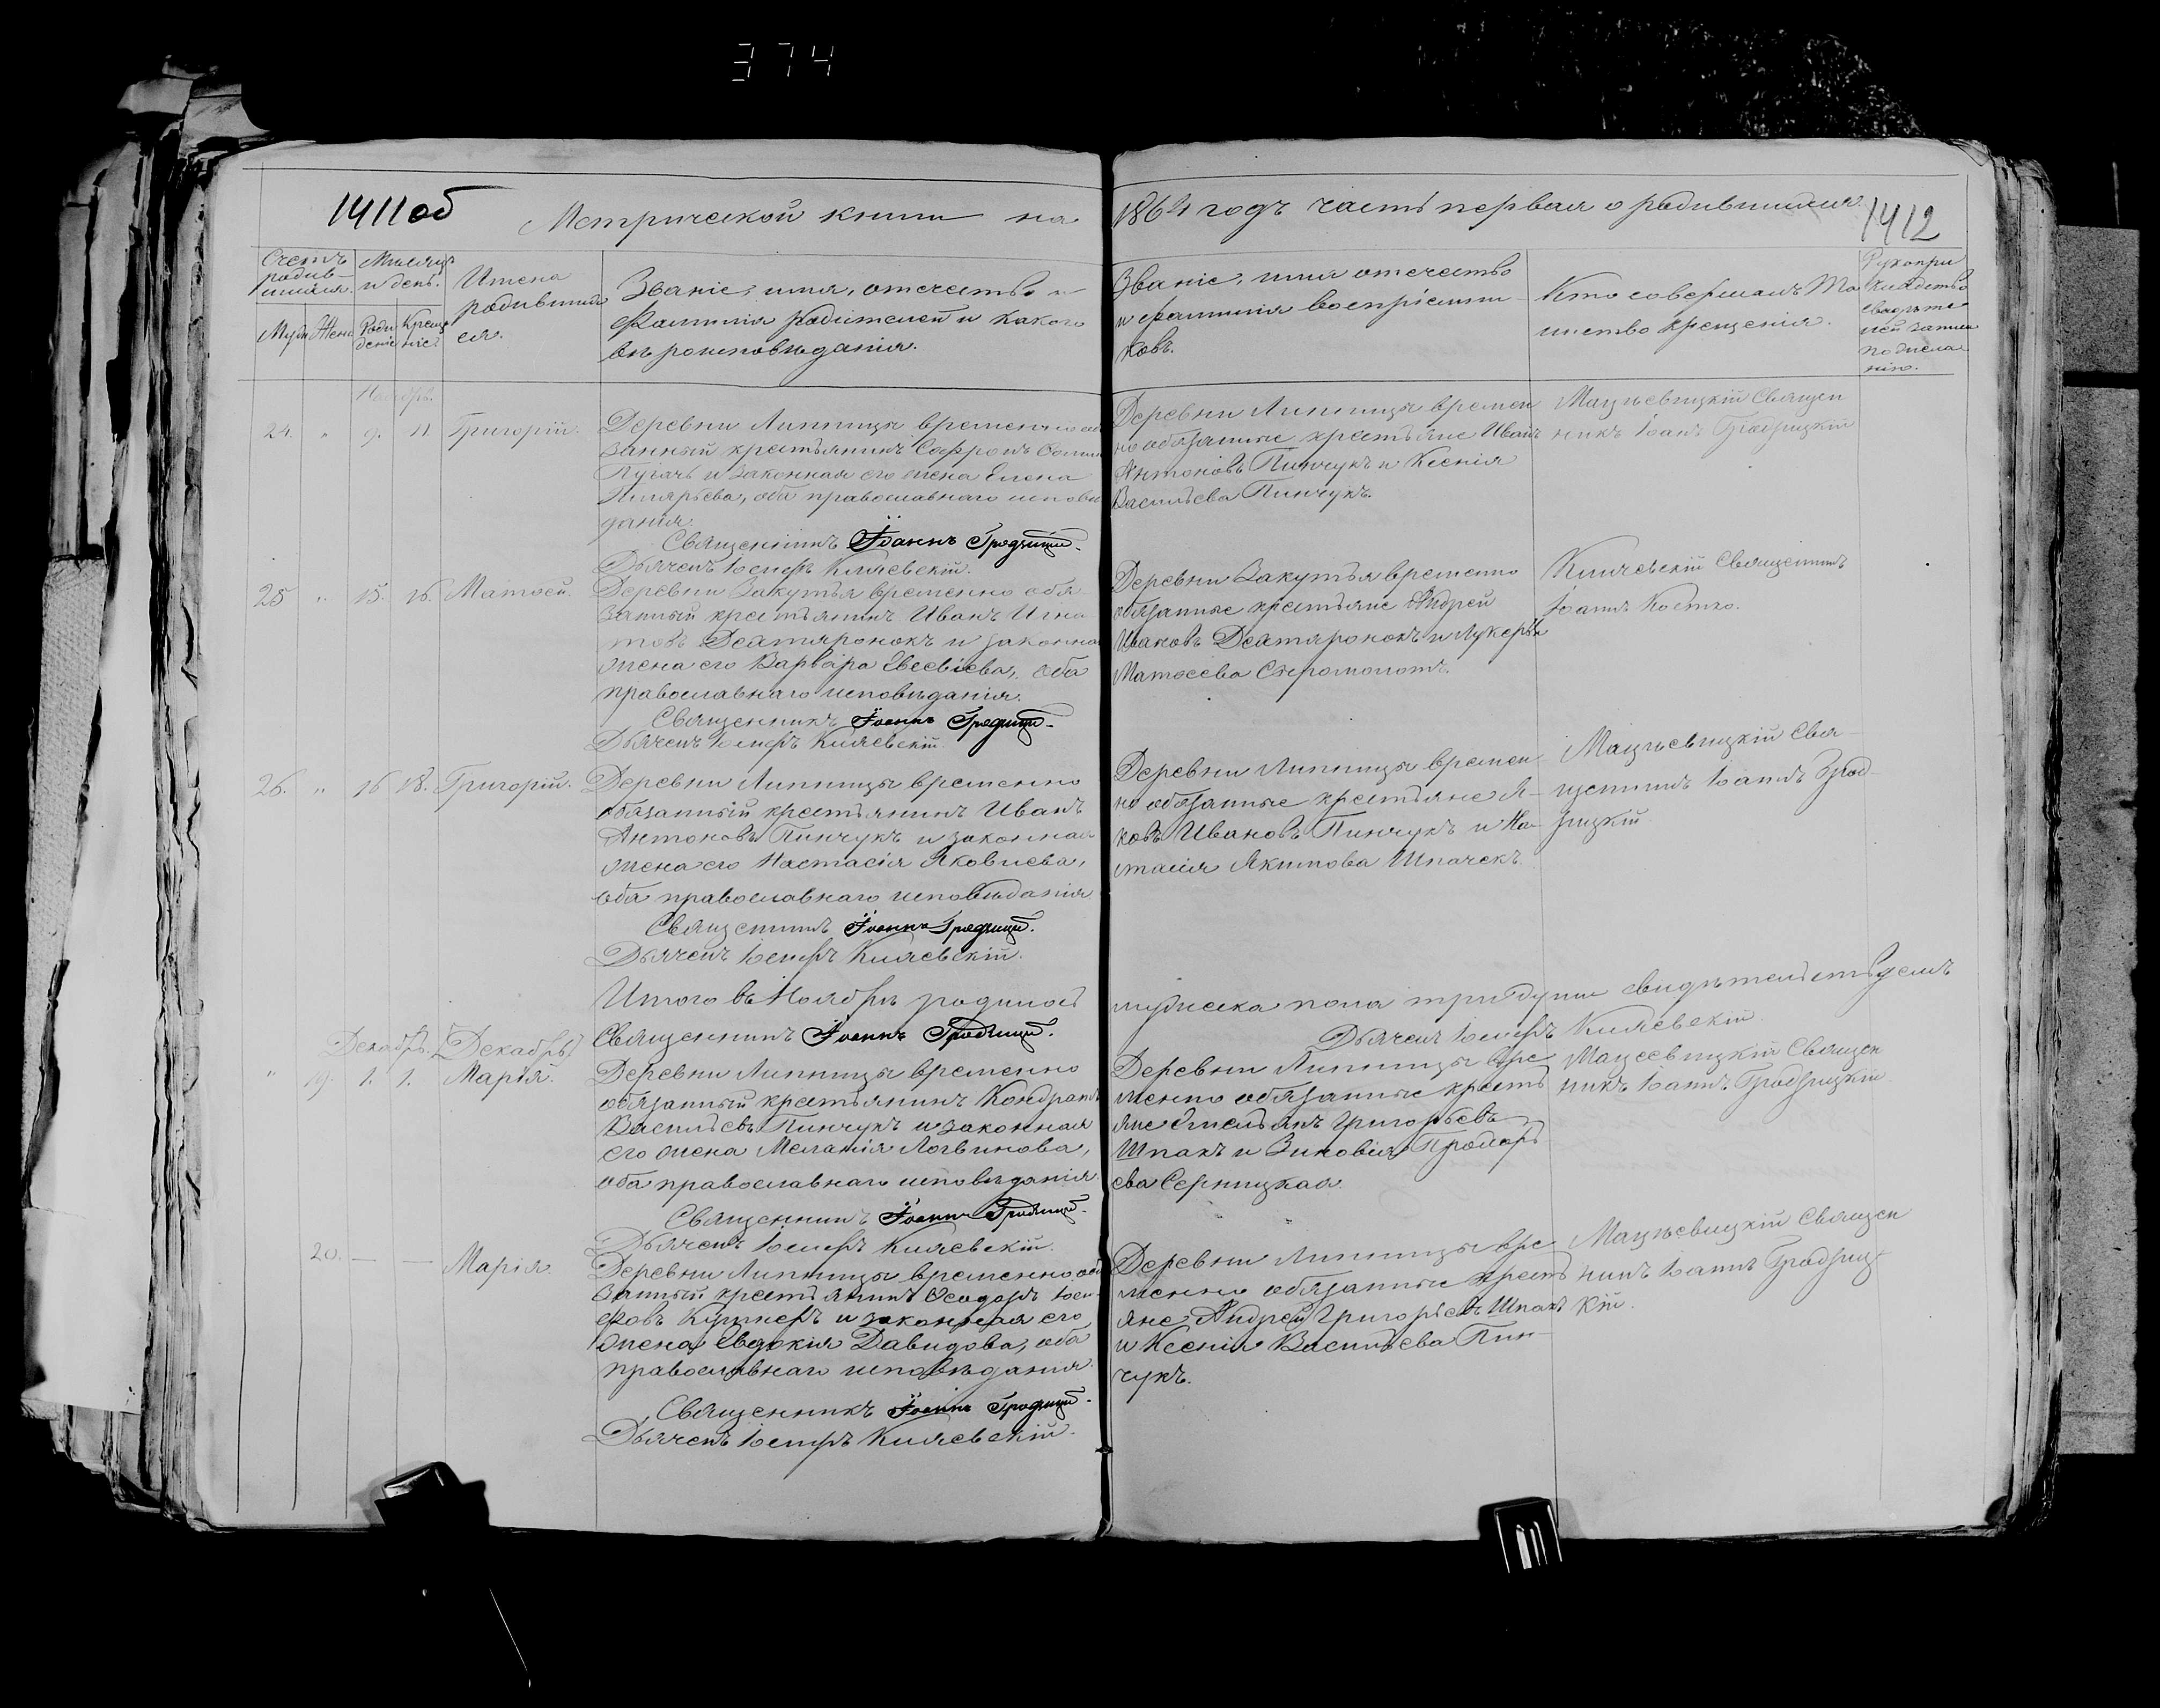 374
1411об
Метрической книги на
1864 годъ часть первая о родившихся.
1412
Счетъ родив-шихся.
Мѣсяцъ и день.
Имена родившихся.
Званіе, имя, отчество и
фамилія родителей и какого
вѣроисповѣданія.
Муж Жен Рожденіе Крещеніе
Званіе, имя отчество
и фамилія воспріемни-
ковъ.
Кто совершалъ Та
инство крещенія.
Рукопри
кладство
свидѣте
лей записи
по желанію.
Ноябрь.
24. " 9. 11. Григорій.
Деревни Липницы временно обя
занный крестьянинъ Сафронъ
Пугачъ и законная его жена Елена
оба православнаго исповѣ
данія.
Священникъ Іоаннъ Гродзицкій.
Дьячекъ Іосифъ Княевскій.
Деревни Липницы времен
но обязанные крестьяне Иванъ
Антоновъ Пинчукъ и Ксенія
Васильева Пинчукъ.
Мацѣевицкій Священ
никъ Іоанъ Гродзицкій
25 " 15. 16. Матѳей.
Деревни Закутья временно обя
занный крестьянинъ Иванъ Игна
товъ Дехтяронокъ и законная
жена его Варвара Евсевіева, оба
православнаго исповѣданія.
Священникъ Іоаннъ Гродзицкій
Дьячекъ Іосифъ Княевскій.
Деревни Закутья временно
обязанные крестьяне Андрей
Ивановъ Дехтяронокъ и Лукерія
Матѳеева
Священникъ
Іоаннъ Костко.
26. " 16 18. Григорій.
Деревни Липницы временно
обязанный крестьянинъ Иванъ
Антоновъ Пинчукъ и законная
жена его Настасія Яковлева,
оба православнаго исповѣданія
Священникъ Іоаннъ Гродзицкій.
Дьячекъ Іосифъ Княевскій.
Деревни Липницы времен
но обязанные крестьяне Я-
ковъ Ивановъ Пинчукъ и На-
стасія Якимова Шпачекъ
Мацѣевицкій Свя-
щенникъ Іоаннъ Грод-
зицкій
Итого въ Ноябрѣ родилось
мужеска пола три души свидѣтельствуемъ
Священникъ Іоаннъ Гродзицкій.
Дьячекъ Іосифъ Княевскій
Декабрь. Декабрь
" 19. 1. 1. Марія.
Деревни Липницы временно
обязанный крестьянинъ Кондратъ
Васильевъ Пинчукъ и законная
его жена Меланія Логвинова,
оба православнаго исповѣданія
Священникъ Іоаннъ Гродзицкій.
Дьячекъ Іосифъ Княевскій.
Деревни Липницы вре
менно обязанные кресть
яне Емельянъ Григорьевъ
Шпакъ и Зиновія
ева Серницкая.
Мацеевицкій Священ
никъ Іоаннъ Гродзицкій
20. — — Марія
Деревни Липницы временно обя
занный крестьянинъ Ѳеодоръ Іоси-
фовъ Кушнеръ и законная его
жена Евдокія Давидова, оба
православнаго исповѣданія.
Священникъ Іоаннъ Гродзицкій.
Дьячекъ Іосифъ Княевскій.
Деревни Липницы вре
менно обязанные кресть
яне Андрей Григорьевъ Шпакъ
и Ксенія Васильева Пин-
чукъ.
Мацѣевицкій Священ
никъ Іоаннъ Гродзиц-
кій.